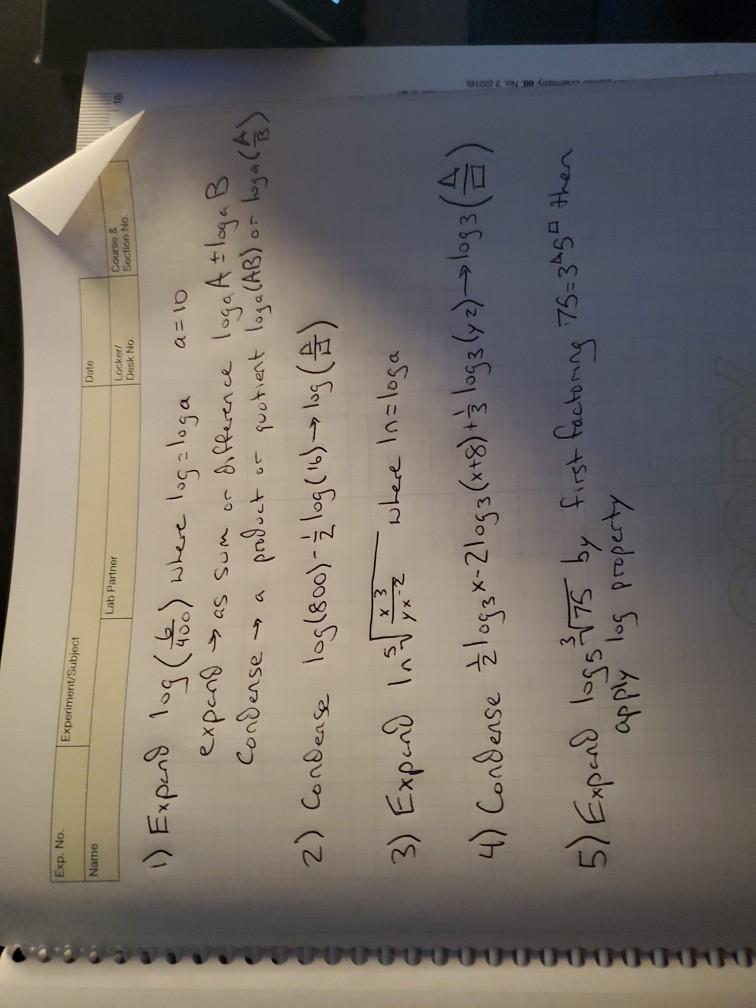 Exp. No.
Experiment/Subject
Date
Name
Lab Partner
Locker/
Desk No.
Course &
Section No.
1) Expand log(6/400) where log=log a a=10
expand → as sum or difference log a A ± log a B
Condense → a product or quotient log a (AB) or log a (A/B)
2) Condense log(800) - 1/2 log(16) → log(Δ/□)
3) Expand ln ⁵√(x³/yx⁻²) where ln = log a
4) Condense 1/2 log₃x - 2log₃(x+8) + 1/3 log₃(yz) → log₃(Δ/□)
5) Expand log₅ ³√75 by first factoring 75=3^Δ5^□ then
apply log property
18
No. 3 (2016)
COPY